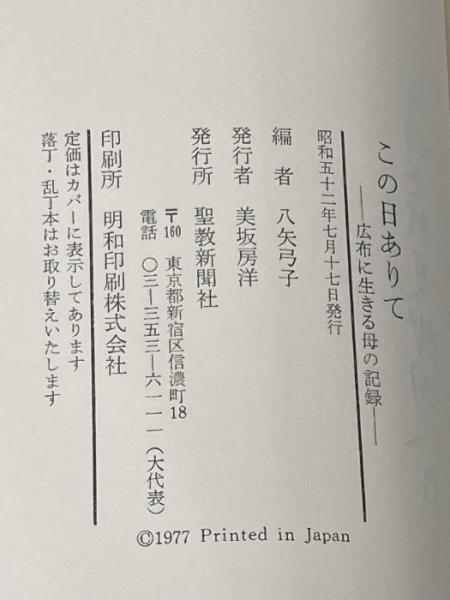 この日ありて
――広布に生きる母の記録――
昭和五十二年七月十七日発行
編者 八矢弓子
発行者 美坂房洋
発行所 聖教新聞社
〒160 東京都新宿区信濃町18
電話 〇三―三五三―六一一一(大代表)
印刷所 明和印刷株式会社
定価はカバーに表示してあります
落丁・乱丁本はお取り替えいたします
©1977 Printed in Japan